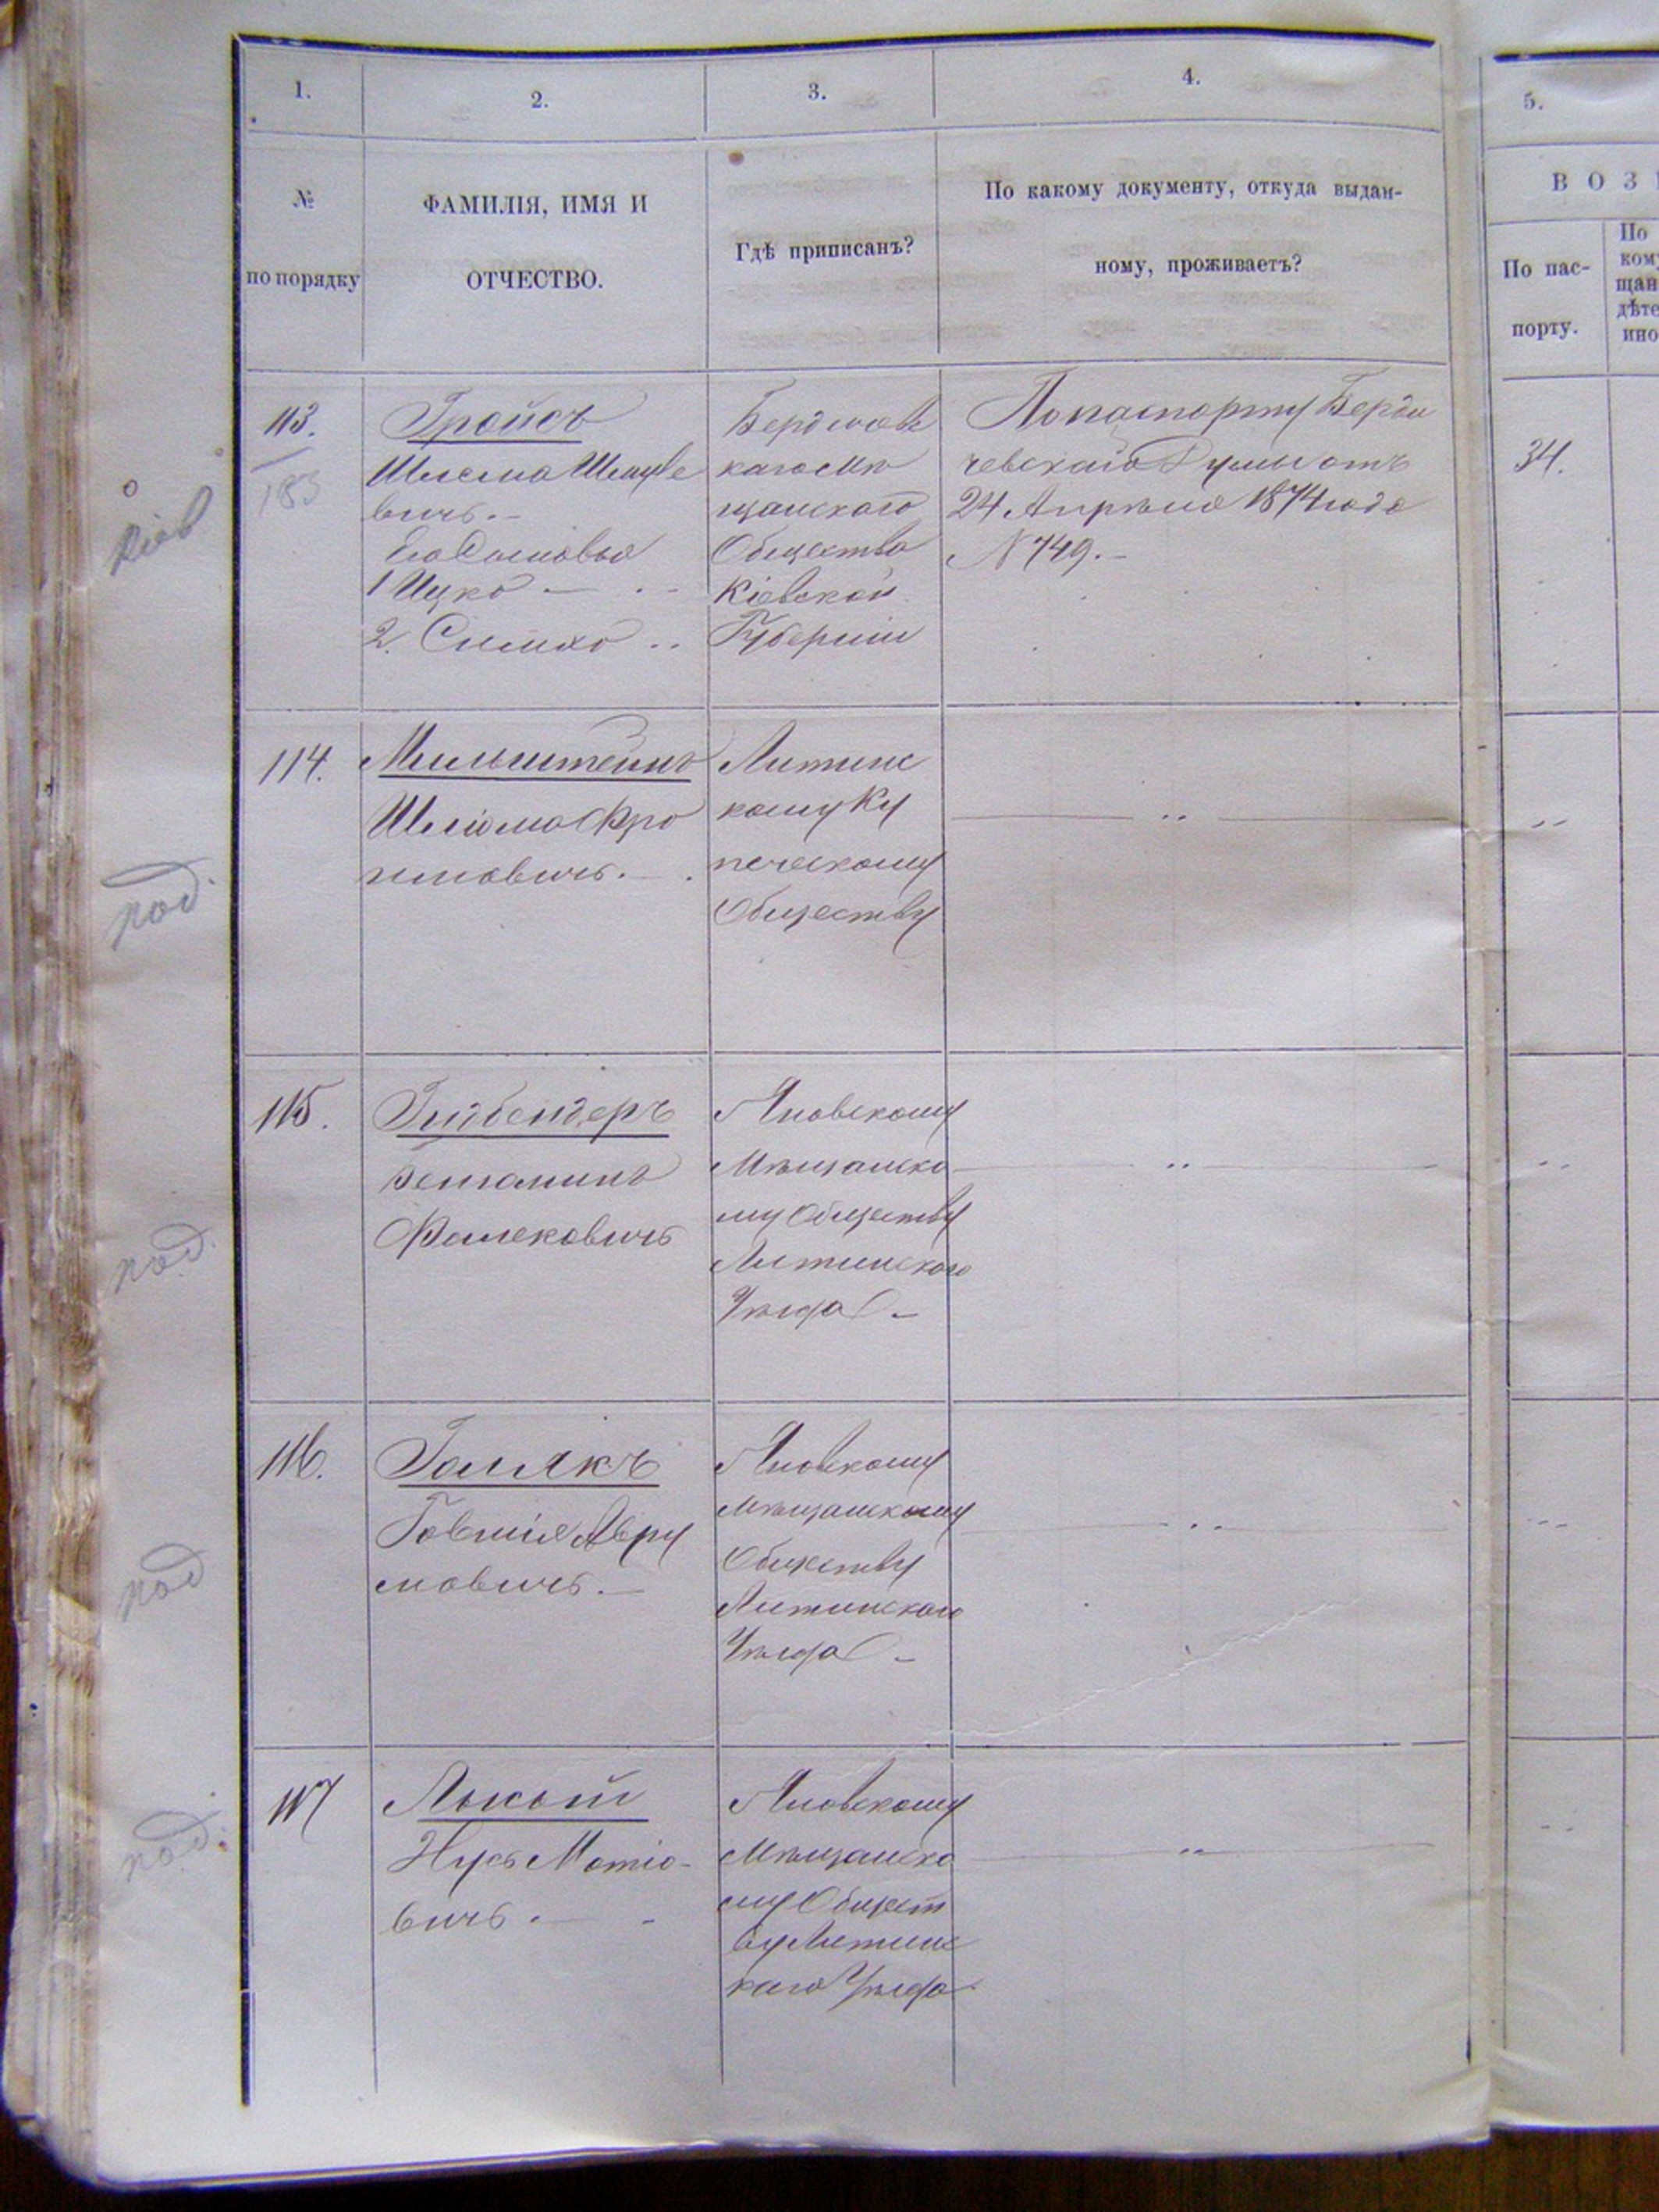 1.
2.
3.
4.
5.
№
по порядку
ФАМИЛІЯ, ИМЯ И
ОТЧЕСТВО.
Гдѣ приписанъ?
По какому документу, откуда выдан-
ному, проживаетъ?
В О З
По пас-
порту.
По
ком
щан
дѣте
ино
113.
183
Кіев
Гройсъ
Шлема Шмуле
вичъ.-
Его Сыновья
1 Ицко
2. Симха
Бердичевс
каго Мѣ
щанскаго
Общества
Кіевской
Губерніи
По паспорту Берди
чевской Думы отъ
24 Апрѣля 1874 года
№ 749.-
34.
под.
114.
Мильштейнъ
Шліома Фро
имовичъ.-
Литинс
кому Ку
печескому
Обществу
под.
115.
Гидбендеръ
Веніаминъ
Фалековичъ
Яновскому
Мѣщанско
му Обществу
Литинскаго
Уѣзда -
под
116.
Галякъ
Говшія Авру
мовичъ.-
Яновскому
Мѣщанскому
Обществу
Литинскаго
Уѣзда -
под.
117
Лысый
Нусь Мотіо-
вичъ.-
Яновскому
Мѣщанско
му Общест
ву Литинс
каго Уѣзда